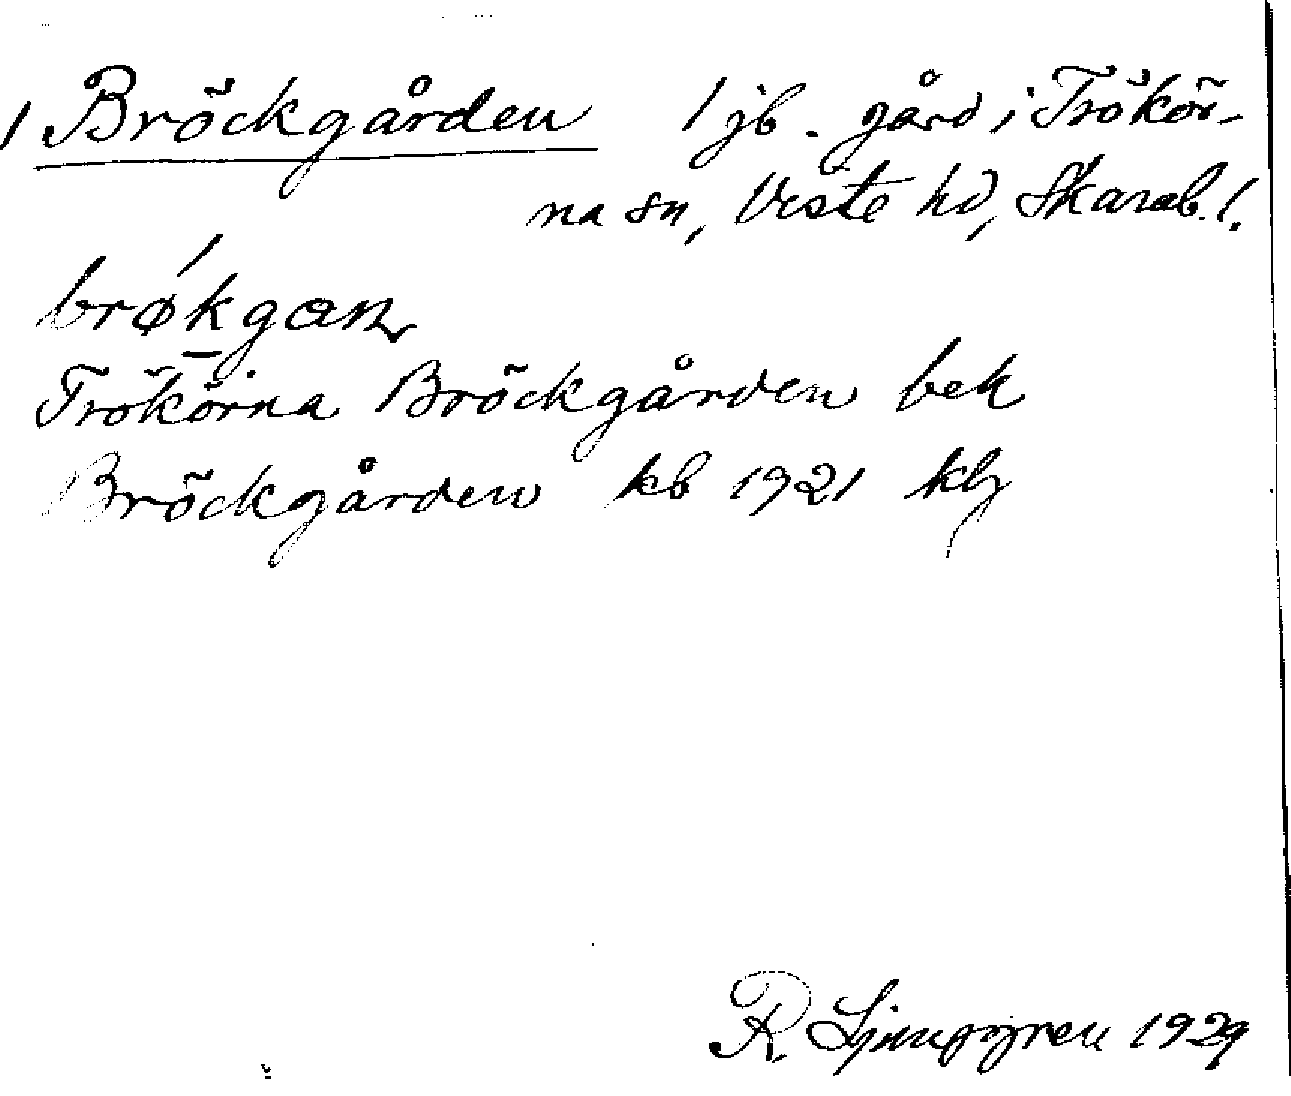 1 Bröckgården 1 jb. gård i Trökör-
na sn, Viste hd, Skarab. l.
brøkgan
Trökörna Bröckgården bek
Bröckgården kb 1921 kbg
R. Ljunggren 1929